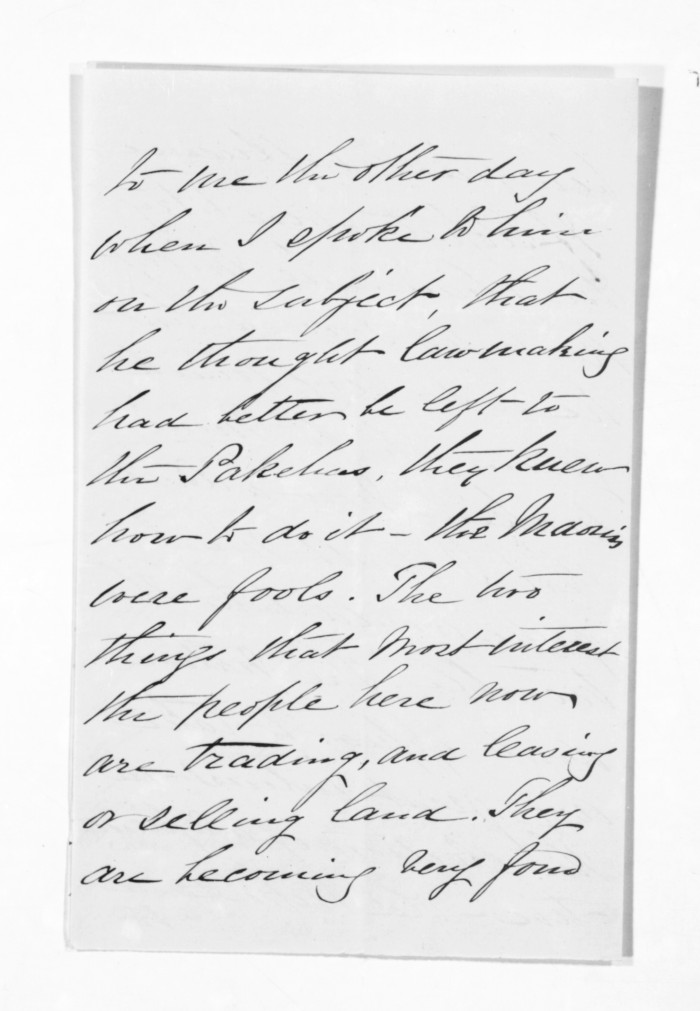 to me the other day
when I spoke to him
on the subject, that
he thought lawmaking
had better be left to
the Pakehas, they knew
how to do it - the Maories
were fools. The two
things that most interest
the people here now
are trading, and leasing
or selling land. They
are becoming very fond